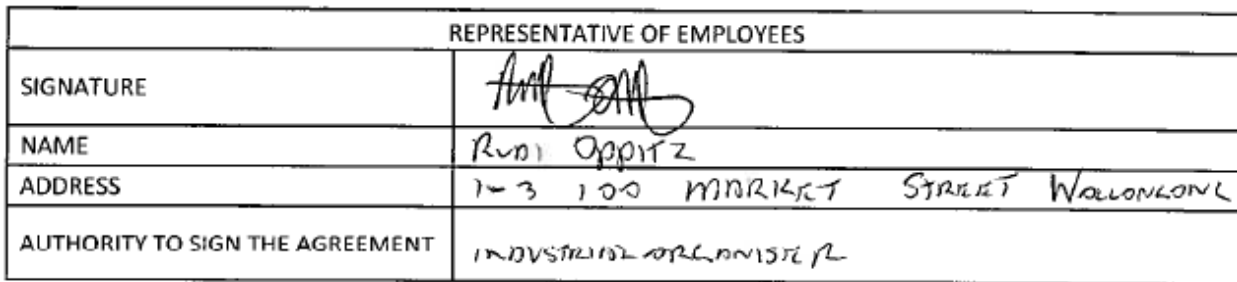 REPRESENTATIVE OF EMPLOYEES
SIGNATURE
NAME RUDI OPPITZ
ADDRESS 1-3 100 MARKET STREET WOLLONGONG
AUTHORITY TO SIGN THE AGREEMENT INDUSTRIAL ORGANISER